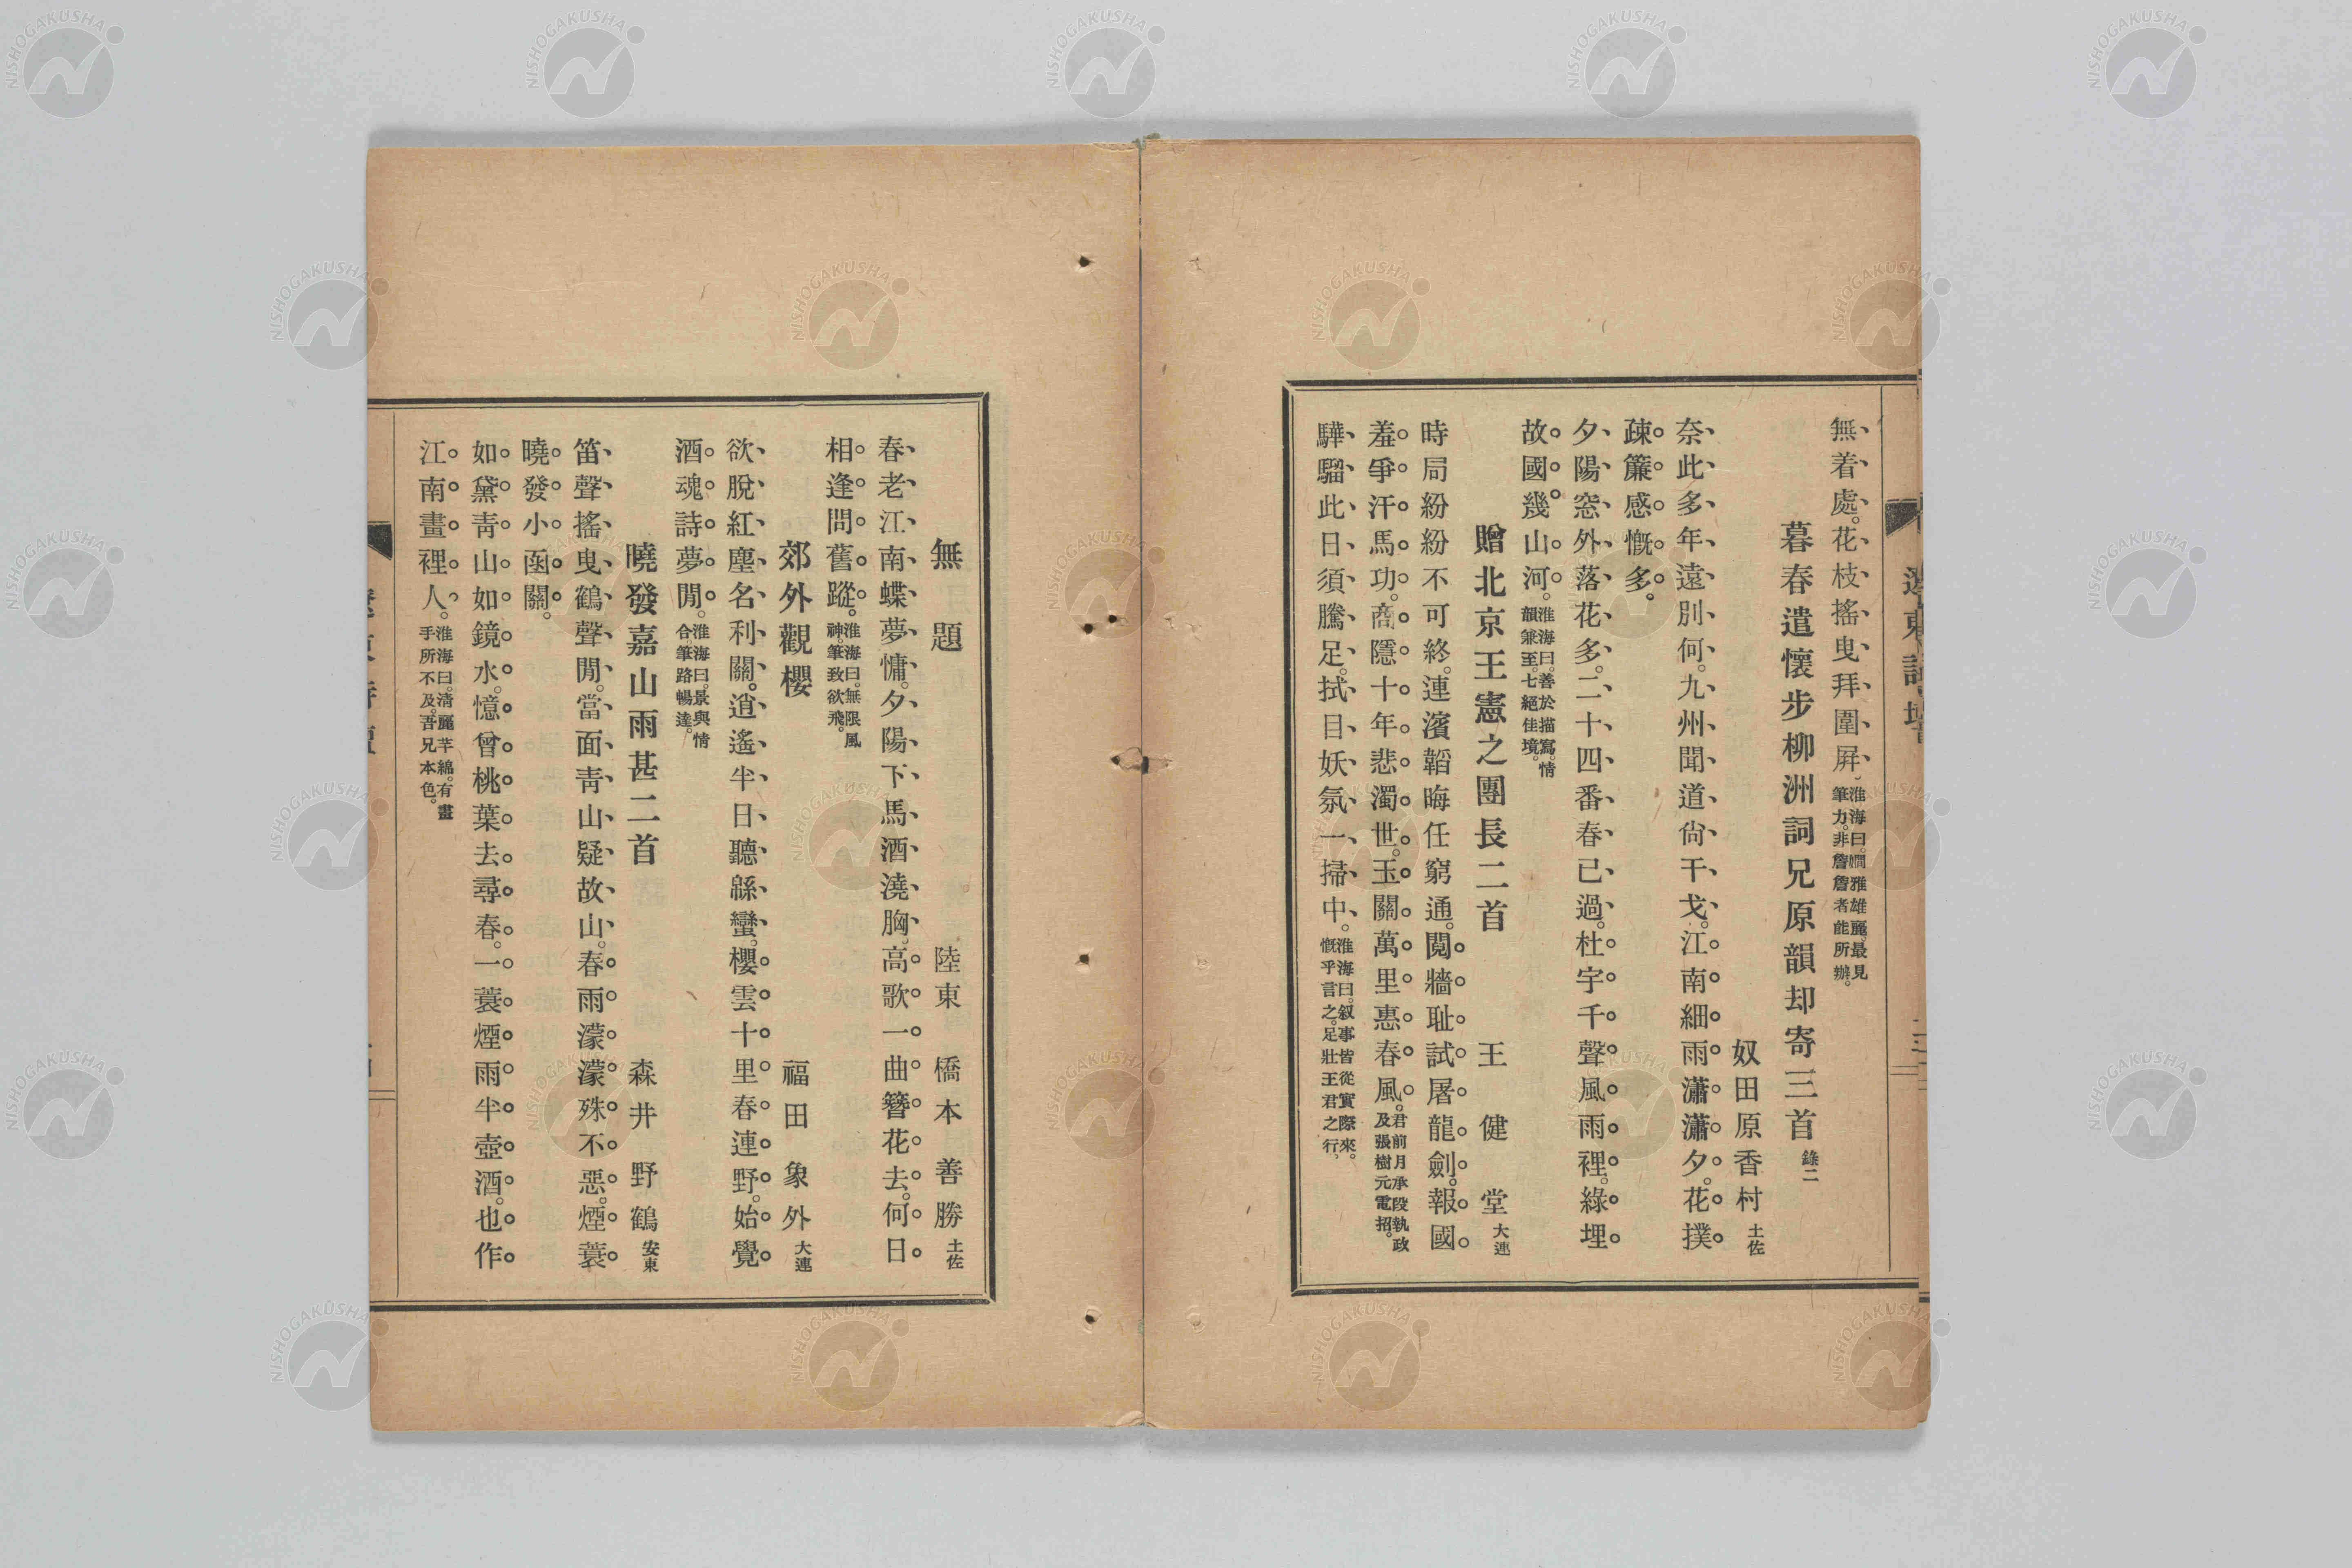 無着處。花枝搖曳拜圍屛。淮海曰。嫺雅雄麗。最見筆力。非詹詹者能所辦。
暮春遣懷步柳洲詞兄原韻却寄三首 錄二
奴田原香村 土佐
奈此多年遠別何。九州聞道尙干戈。江南細雨瀟瀟夕。花撲
疎簾感慨多。
夕陽窓外落花多。二十四番春已過。杜宇千聲風雨裡。綠埋
故國幾山河。淮海曰。善於描寫。情韻兼至。七絕佳境。
贈北京王憲之團長二首 王健堂 大連
時局紛紛不可終。連濱韜晦任窮通。鬩牆耻試屠龍劍。報國
羞爭汗馬功。商隱十年悲濁世。玉關萬里惠春風。君前月承段執政及張樹元電招。
驊騮此日須騰足。拭目妖氛一掃中。淮海曰。叙事皆從實際來。慨乎言之。足壯王君之行。
無題 陸東 橋本善勝 土佐
春老江南蝶夢慵。夕陽下馬酒澆胸。高歌一曲簪花去。何日
相逢問舊蹤。淮海曰。無限風神。筆致欲飛。
郊外觀櫻 福田象外 大連
欲脫紅塵名利關。逍遙半日聽緜蠻。櫻雲十里春連野。始覺
酒魂詩夢閒。淮海曰。景與情合。筆路暢達。
曉發嘉山雨甚二首 森井野鶴 安東
笛聲搖曳鶴聲閒。當面靑山疑故山。春雨濛濛殊不惡。煙蓑
曉發小函關。
如黛靑山如鏡水。憶曾桃葉去尋春。一蓑煙雨半壺酒。也作
江南畫裡人。淮海曰。淸麗芊綿。有畫手所不及。吾兄本色。